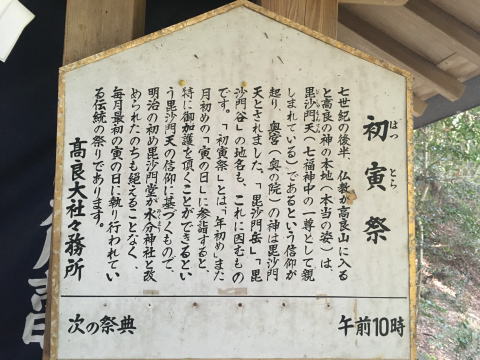 初寅祭
はつ とら
七世紀の後半、仏教が高良山に入る
と高良の神の本地(本当の姿)は、
毘沙門天(七福神中の一尊として親
しまれている)であるという信仰が
起り、奥宮(奥の院)の神は毘沙門
天とされました。「毘沙門岳」、「毘
沙門谷」の地名も、これに因むもの
です。「初寅祭」とは、「年初め」また
月初めの「寅の日」に参詣すると、
特に御加護を頂くことができるとい
う毘沙門天の信仰に基づくもので、
明治の初め毘沙門堂が水分神社と改
められたのちも絶えることなく、
毎月最初の寅の日に執り行われてい
る伝統の祭りであります。
高良大社々務所
次の祭典
午前10時